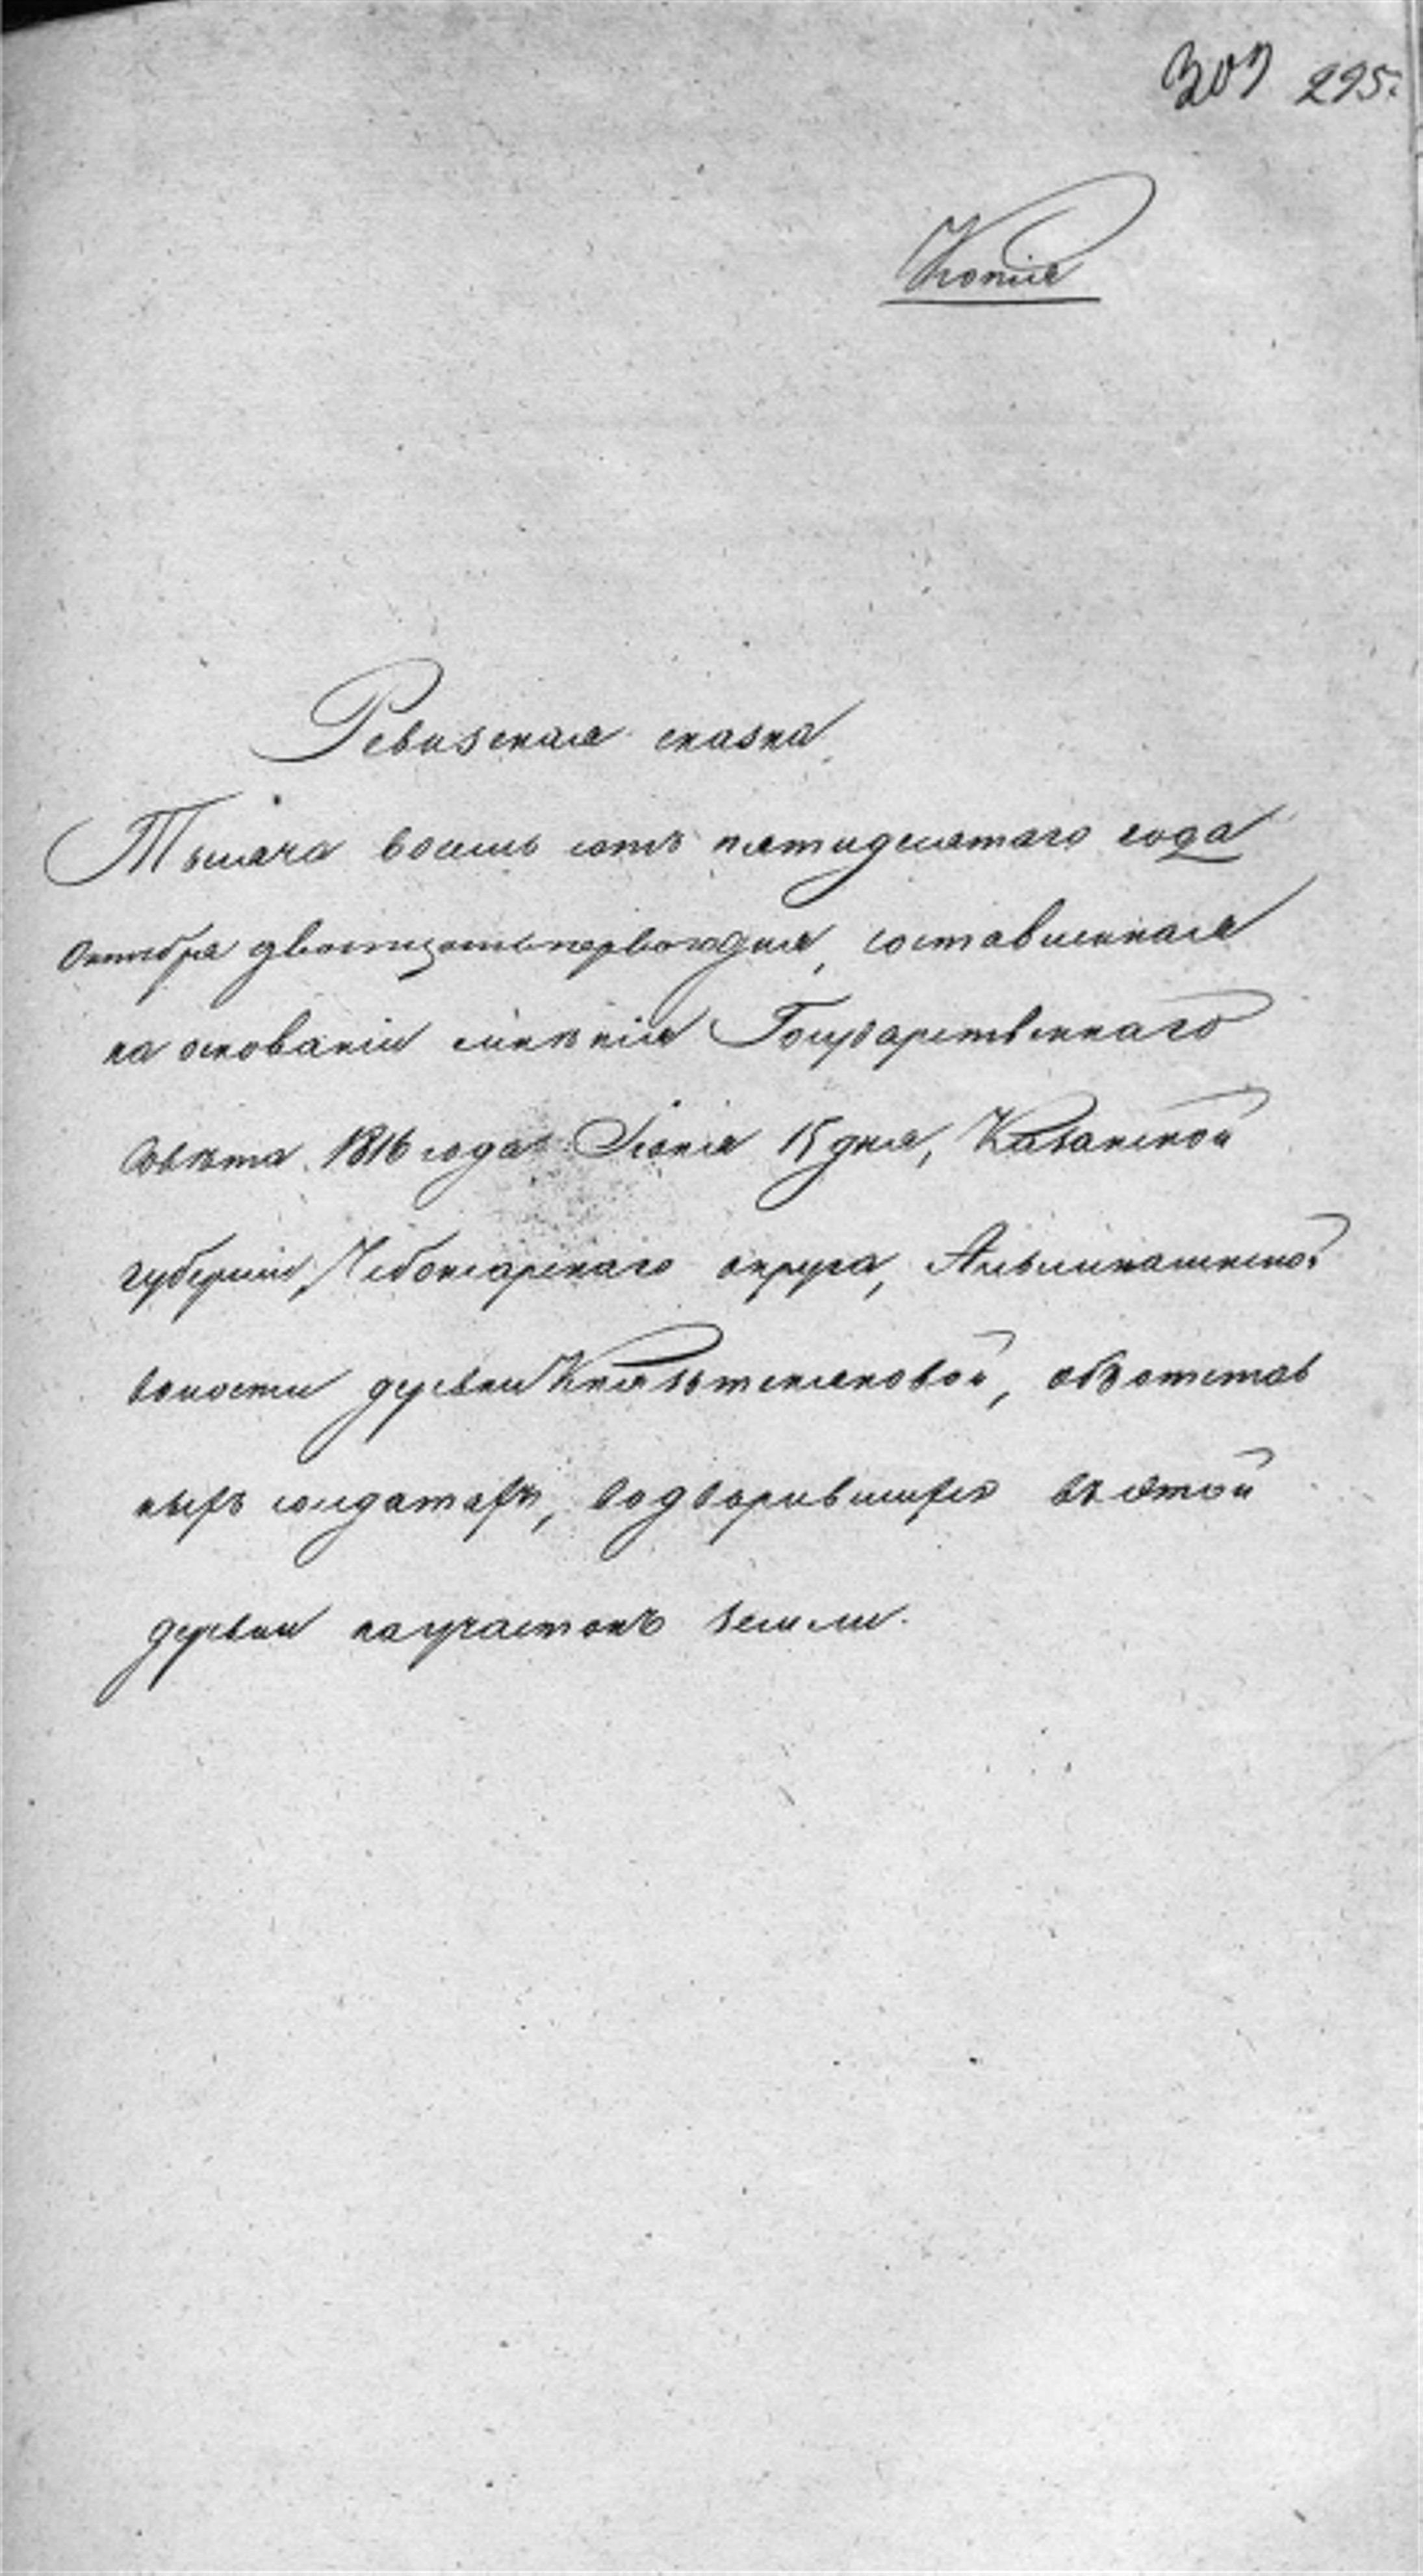 307 295.
Копія
Ревизская сказка
Тысяча восемь сотъ пятидесятаго года
Октября двотцать перваго дня, составленная
на основаніи мнѣнія Государственнаго
Совѣта 1816 года Іюня 15 дня, Казанской
губерніи, Чебоксарскаго округа, Алымкашской
волости деревни Князьтеняковой, объ отстав
ныхъ солдатахъ, водворившихся въ этой
деревни на участокъ земли.